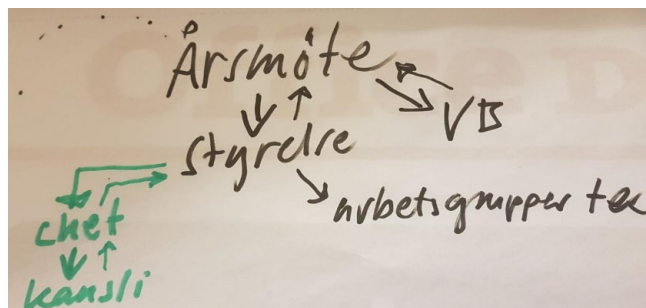 Årsmöte
VB
styrelse
arbetsgrupper
chef
kansli